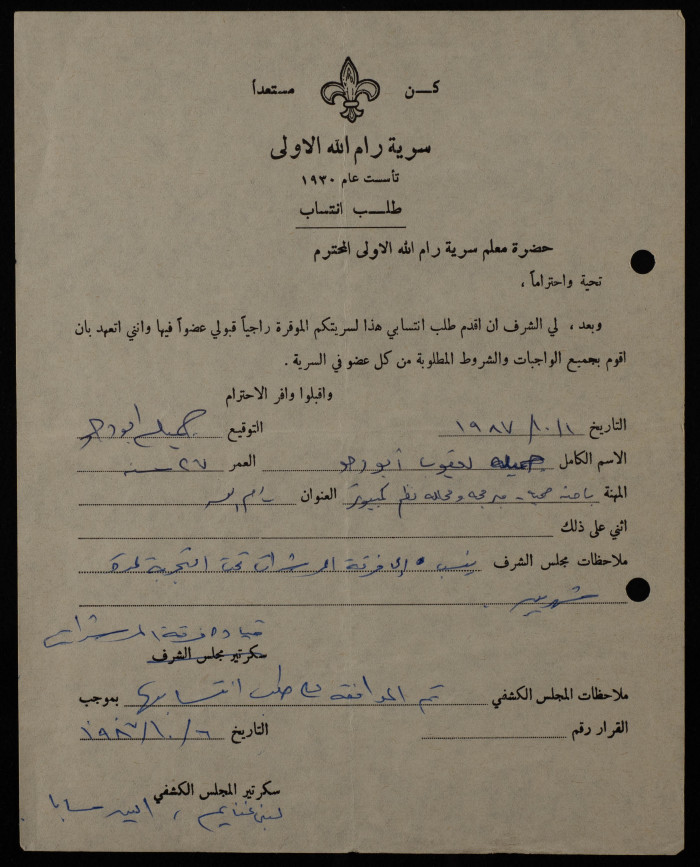 كـــن مستعداً
سرية رام الله الاولى
تأسست عام ١٩٣٠
طلـــب انتساب
حضرة معلم سرية رام الله الاولى المحترم
تحية واحتراماً ،
وبعد ، لي الشرف ان اقدم طلب انتسابي هذا لسريتكم الموقرة راجياً قبولي عضواً فيها وانني اتعهد بان
اقوم بجميع الواجبات والشروط المطلوبة من كل عضو في السرية .
واقبلوا وافر الاحترام
التاريخ ١٩٨٧/١٠/١ التوقيع
الاسم الكامل جميله يعقوب أبو دحو العمر ٢٦ سنه
المهنة باحثه صحية - مبرمجه ومحلله نظم كمبيوتر العنوان رام الله
اثني على ذلك
ملاحظات مجلس الشرف الى فرقة المرشدات تحت التجربة لمدة
شهرين .
قيادة فرقة المرشدات
سكرتير مجلس الشرف
ملاحظات المجلس الكشفي تم الموافقة على طلب انتسابها بموجب
القرار رقم التاريخ ١٩٨٧/١٠/٦
سكرتير المجلس الكشفي
لبنى غنايم ، سابا